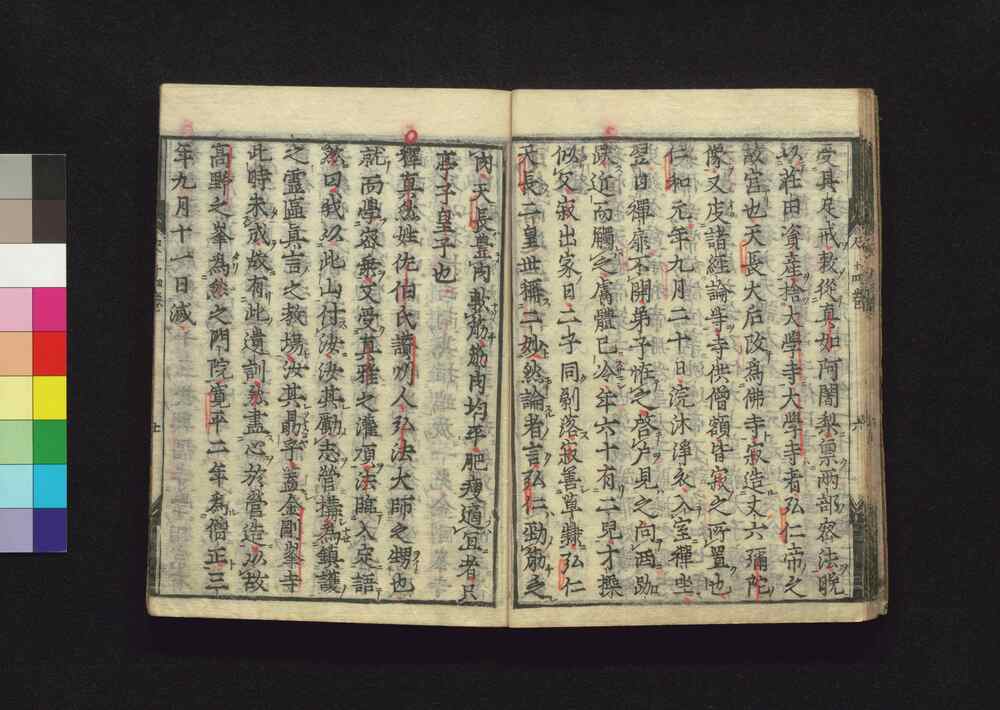 受具足戒教從真如阿闍梨稟兩部密法晩
以莊田資産捨大學寺大學寺者弘仁帝之
故宮也天長大后改為佛寺寂造丈六彌陀
像又度諸經論學寺供僧額皆寂之所置也
仁和元年九月二十日浣沐淨衣入室禪坐
翌日禪扉不開弟子恠之啓戸見之向西跏
趺近而觸之膚體已冷年六十有二兒才操
似父寂出家日二子同剃落寂善草隷弘仁
天長二皇世稱二妙然論者言弘仁勁筋乏
肉天長豊肉軟筋筋肉均平肥瘦適宜者只
亭子皇子也
釋真然姓佐伯氏讃州人弘法大師之甥也
就而學密乘又受真雅之灌頂法臨入定語
然曰我以此山付汝汝其勵志營搆為鎮護
之靈區眞言之教場汝其勗乎蓋金剛峯寺
此時未成故有此遺訓然盡心於營造以故
高野之峯為然之門院寛平二年為僧正三
年九月十一日滅